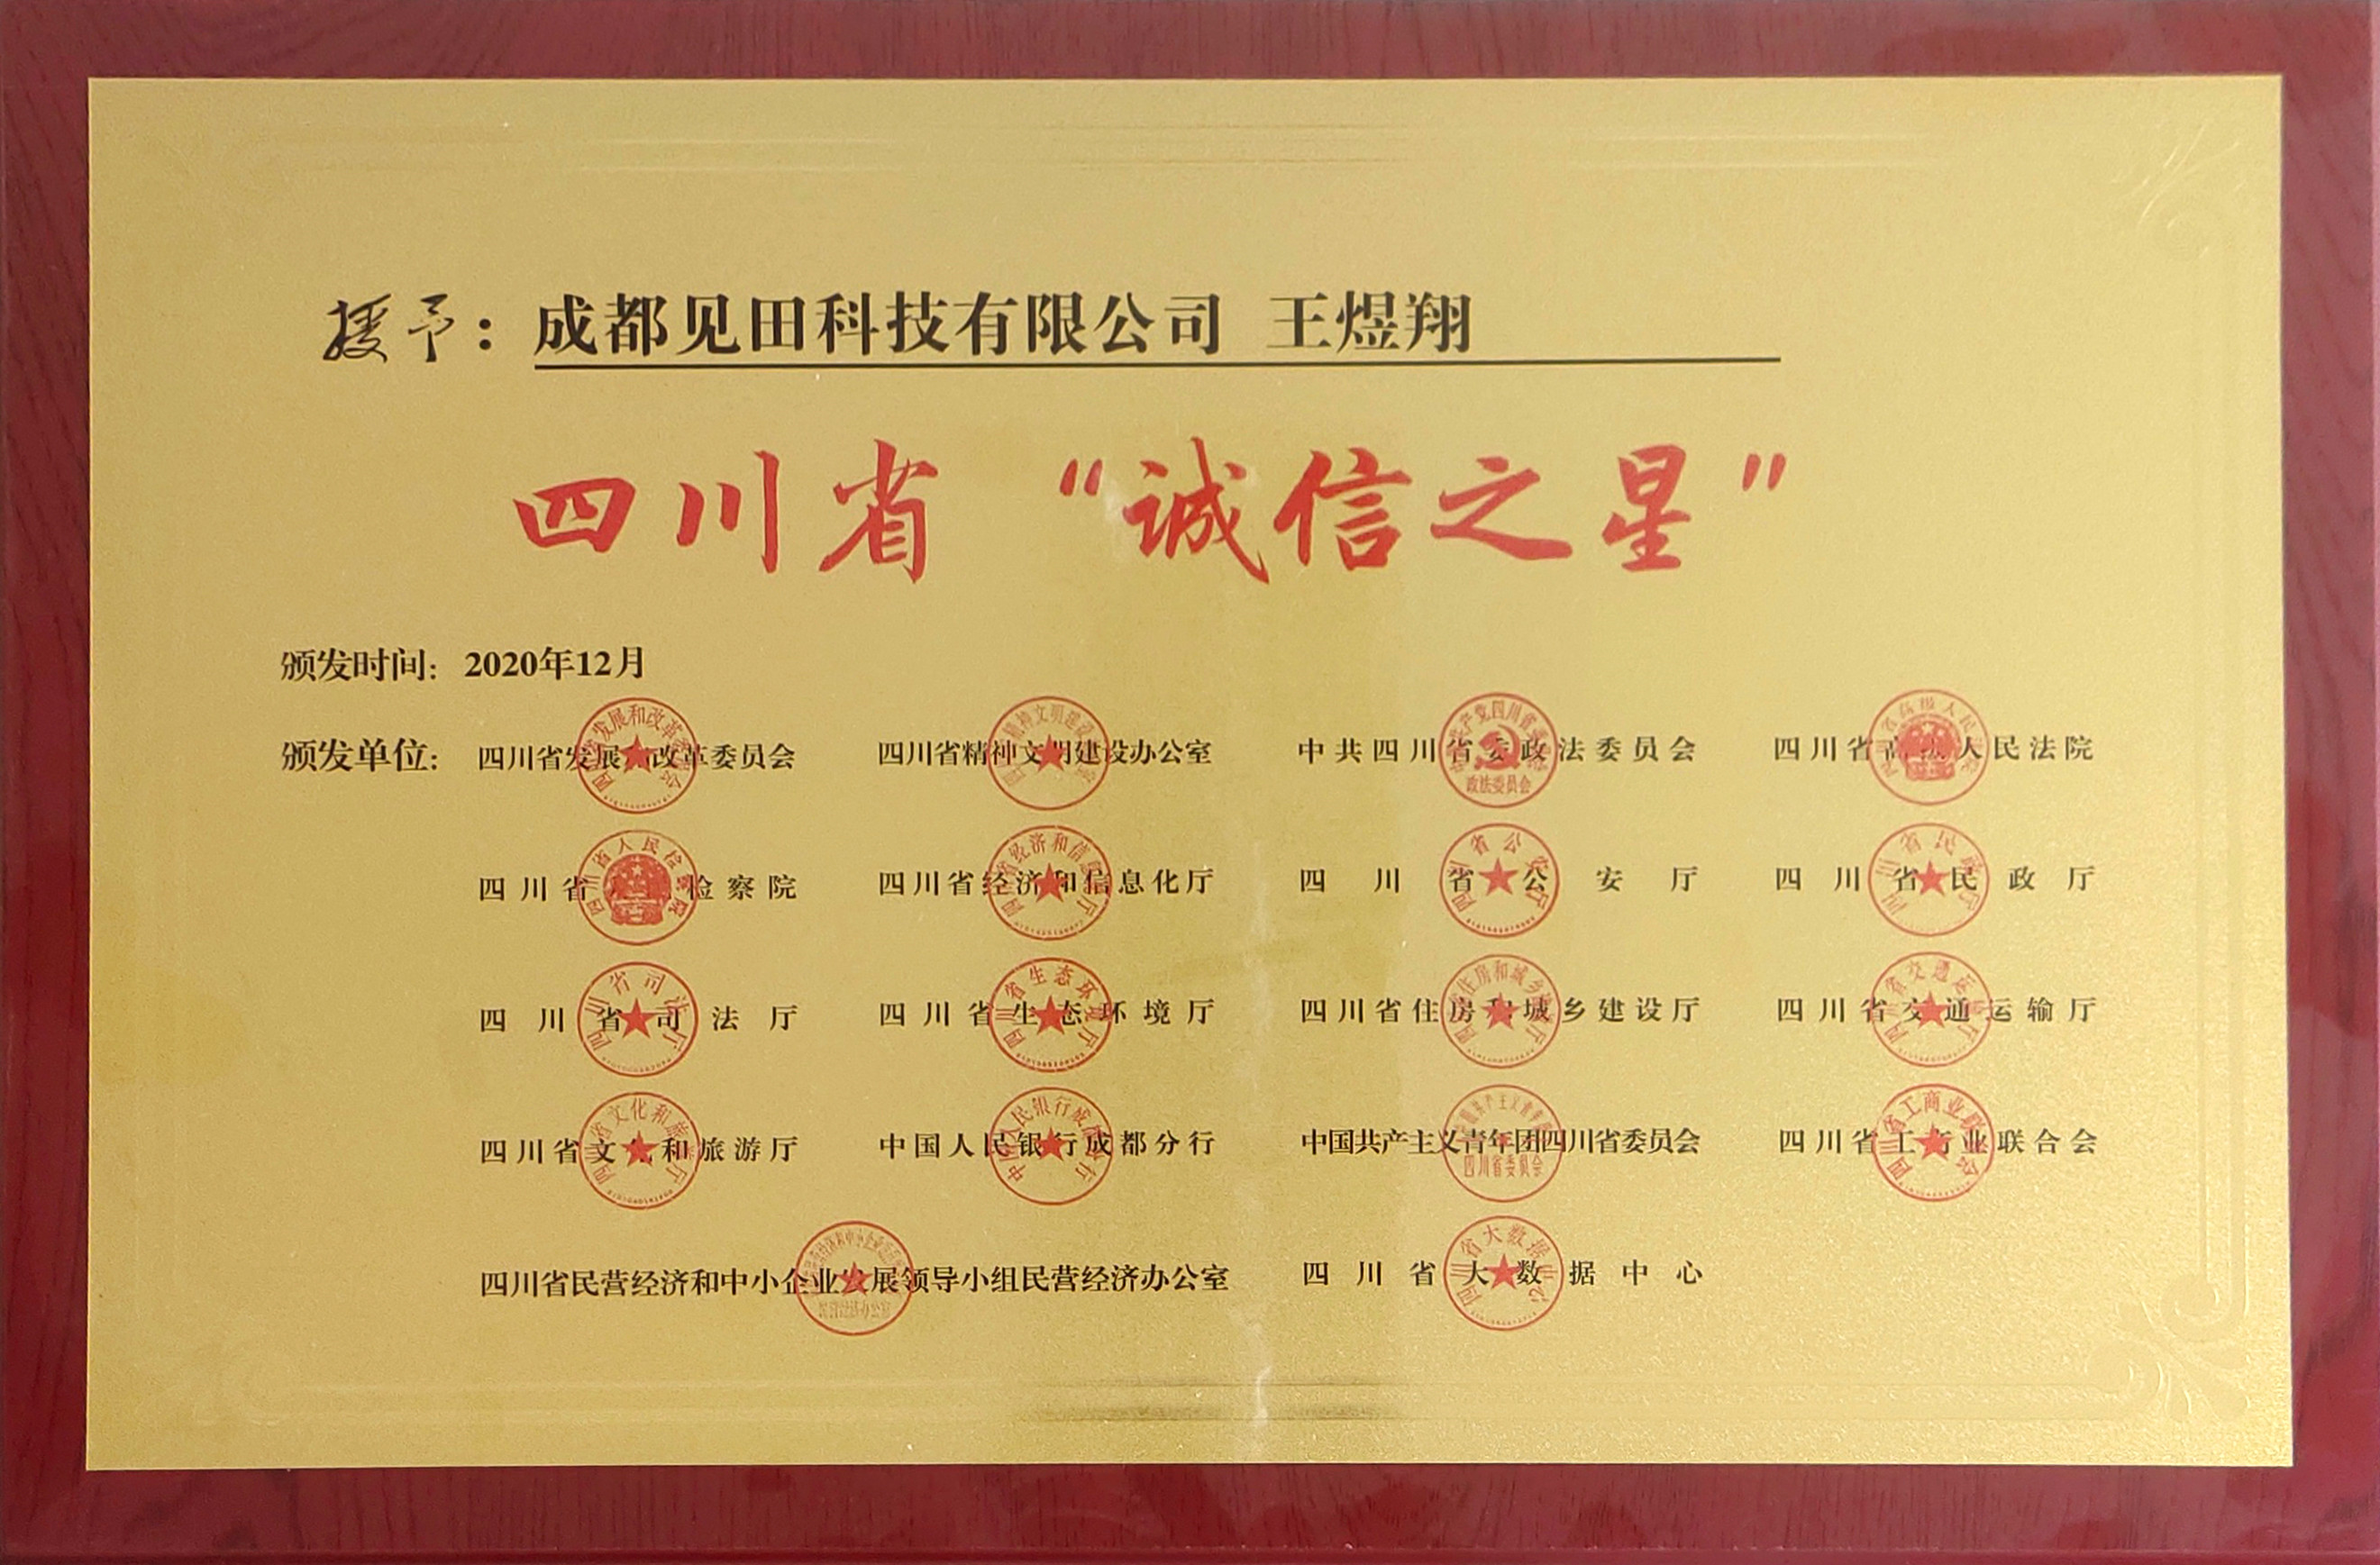 授予：成都见田科技有限公司 王煜翔
四川省“诚信之星”
颁发时间：2020年12月
颁发单位：四川省发展和改革委员会 四川省精神文明建设办公室 中共四川省委政法委员会 四川省高级人民法院
四川省人民检察院 四川省经济和信息化厅 四川省公安厅 四川省民政厅
四川省司法厅 四川省生态环境厅 四川省住房和城乡建设厅 四川省交通运输厅
四川省文化和旅游厅 中国人民银行成都分行 中国共产主义青年团四川省委员会 四川省工商业联合会
四川省民营经济和中小企业发展领导小组民营经济办公室 四川省大数据中心